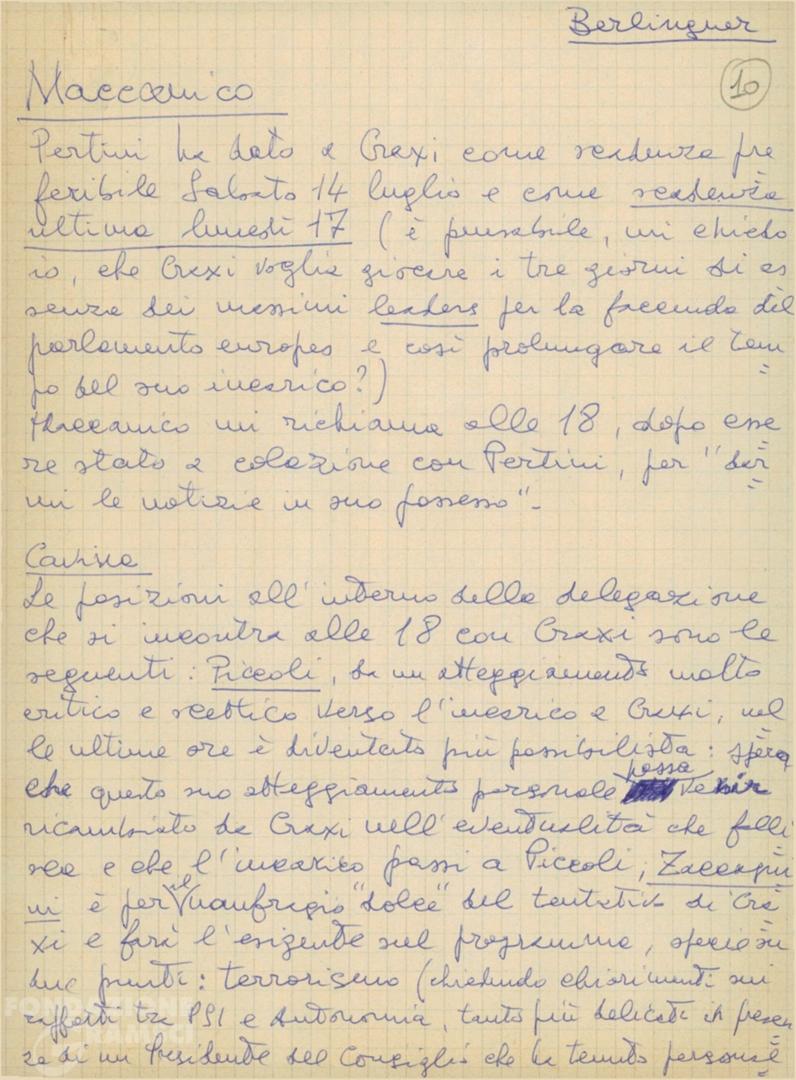 Berlinguer
10
Maccanico
Pertini ha dato a Craxi come scadenza pre
feribile Sabato 14 luglio e come scadenza
ultima lunedì 17 (è pensabile, mi chiedo
io, che Craxi voglia giocare i tre giorni di as
senza dei massimi leaders per la faccenda del
parlamento europeo e così prolungare il tem
po del suo incarico?)
Maccanico mi richiama alle 18, dopo esse
re stato a colazione con Pertini, per "dar
mi le notizie in suo possesso".
Cavina
Le posizioni all'interno della delegazione
che si incontra alle 18 con Craxi sono le
seguenti: Piccoli, da un atteggiamento molto
critico e scettico verso l'incarico a Craxi, nel
le ultime ore è diventato più possibilista: spera
che questo suo atteggiamento personale possa venir
ricambiato da Craxi nell'eventualità che falli
sca e che l'incarico passi a Piccoli; Zaccagni
ni è per il naufragio "dolce" del tentativo di Cra
xi e farà l'esigente sul programma, specie su
due punti: terrorismo (chiedendo chiarimenti sui
rapporti tra PSI e Autonomia, tanto più delicati in presen
za di un Presidente del Consiglio che ha tenuto personal
FONDAZIONE
GRAMSCI